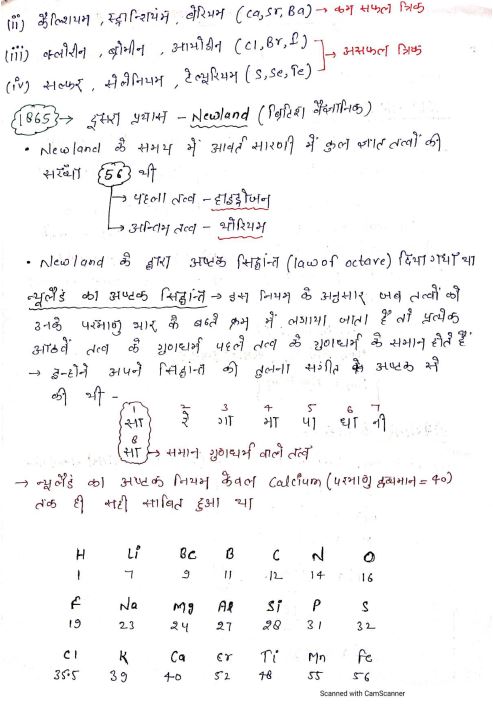 (ii) कैल्शियम, स्ट्रान्शियम, बेरियम (Ca, Sr, Ba) → कम सफल त्रिक
(iii) क्लोरीन, ब्रोमीन, आयोडीन (Cl, Br, I)
→ असफल त्रिक
(iv) सल्फर, सेलेनियम, टेल्यूरियम (S, Se, Te)
1865 → दूसरा प्रयास - Newland (ब्रिटिश वैज्ञानिक)
• Newland के समय में आवर्त सारणी में कुल ज्ञात तत्वों की
संख्या 56 थी
→ पहला तत्व - हाइड्रोजन
→ अन्तिम तत्व - थोरियम
• Newland के द्वारा अष्टक सिद्धांत (law of octave) दिया गया था
न्यूलैंड का अष्टक सिद्धांत → इस नियम के अनुसार जब तत्वों को
उनके परमाणु भार के बढते क्रम में लगाया जाता है तो प्रत्येक
आठवें तत्व के गुणधर्म पहले तत्व के गुणधर्म के समान होते हैं
→ इन्होने अपने सिद्धांत की तुलना संगीत के अष्टक से
की थी -
1 2 3 4 5 6 7
सा रे गा मा पा धा नी
8
सा → समान गुणधर्म वाले तत्व
→ न्यूलैंड का अष्टक नियम केवल Calcium (परमाणु द्रव्यमान = 40)
तक ही सही साबित हुआ था
H Li Be B C N O
1 7 9 11 12 14 16
F Na Mg Al Si P S
19 23 24 27 28 31 32
Cl K Ca Cr Ti Mn Fe
35.5 39 40 52 48 55 56
Scanned with CamScanner